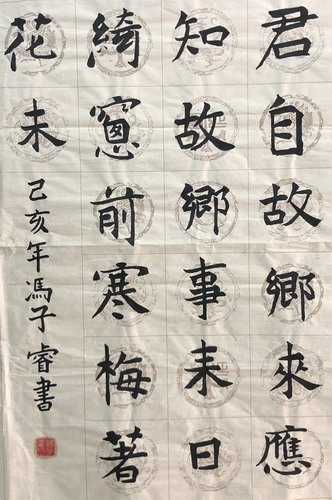 君自故鄉來應
知故鄉事来日
綺窻前寒梅著
花未
己亥年馮子睿書